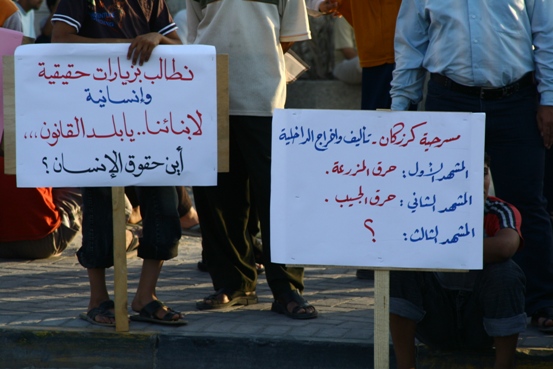 نطالب بزيارات حقيقية
وانسانية
لابنائنا.. يا بلد القانون,,,
أين حقوق الإنسان؟
مسرحية كرزكان - تأليف واخراج الداخلية
المشهد الأول: حرق المزرعة.
المشهد الثاني: حرق الجيب.
المشهد الثالث: ؟